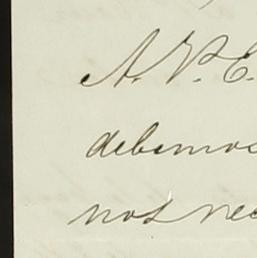 A. V. E.
debemos
nos nec